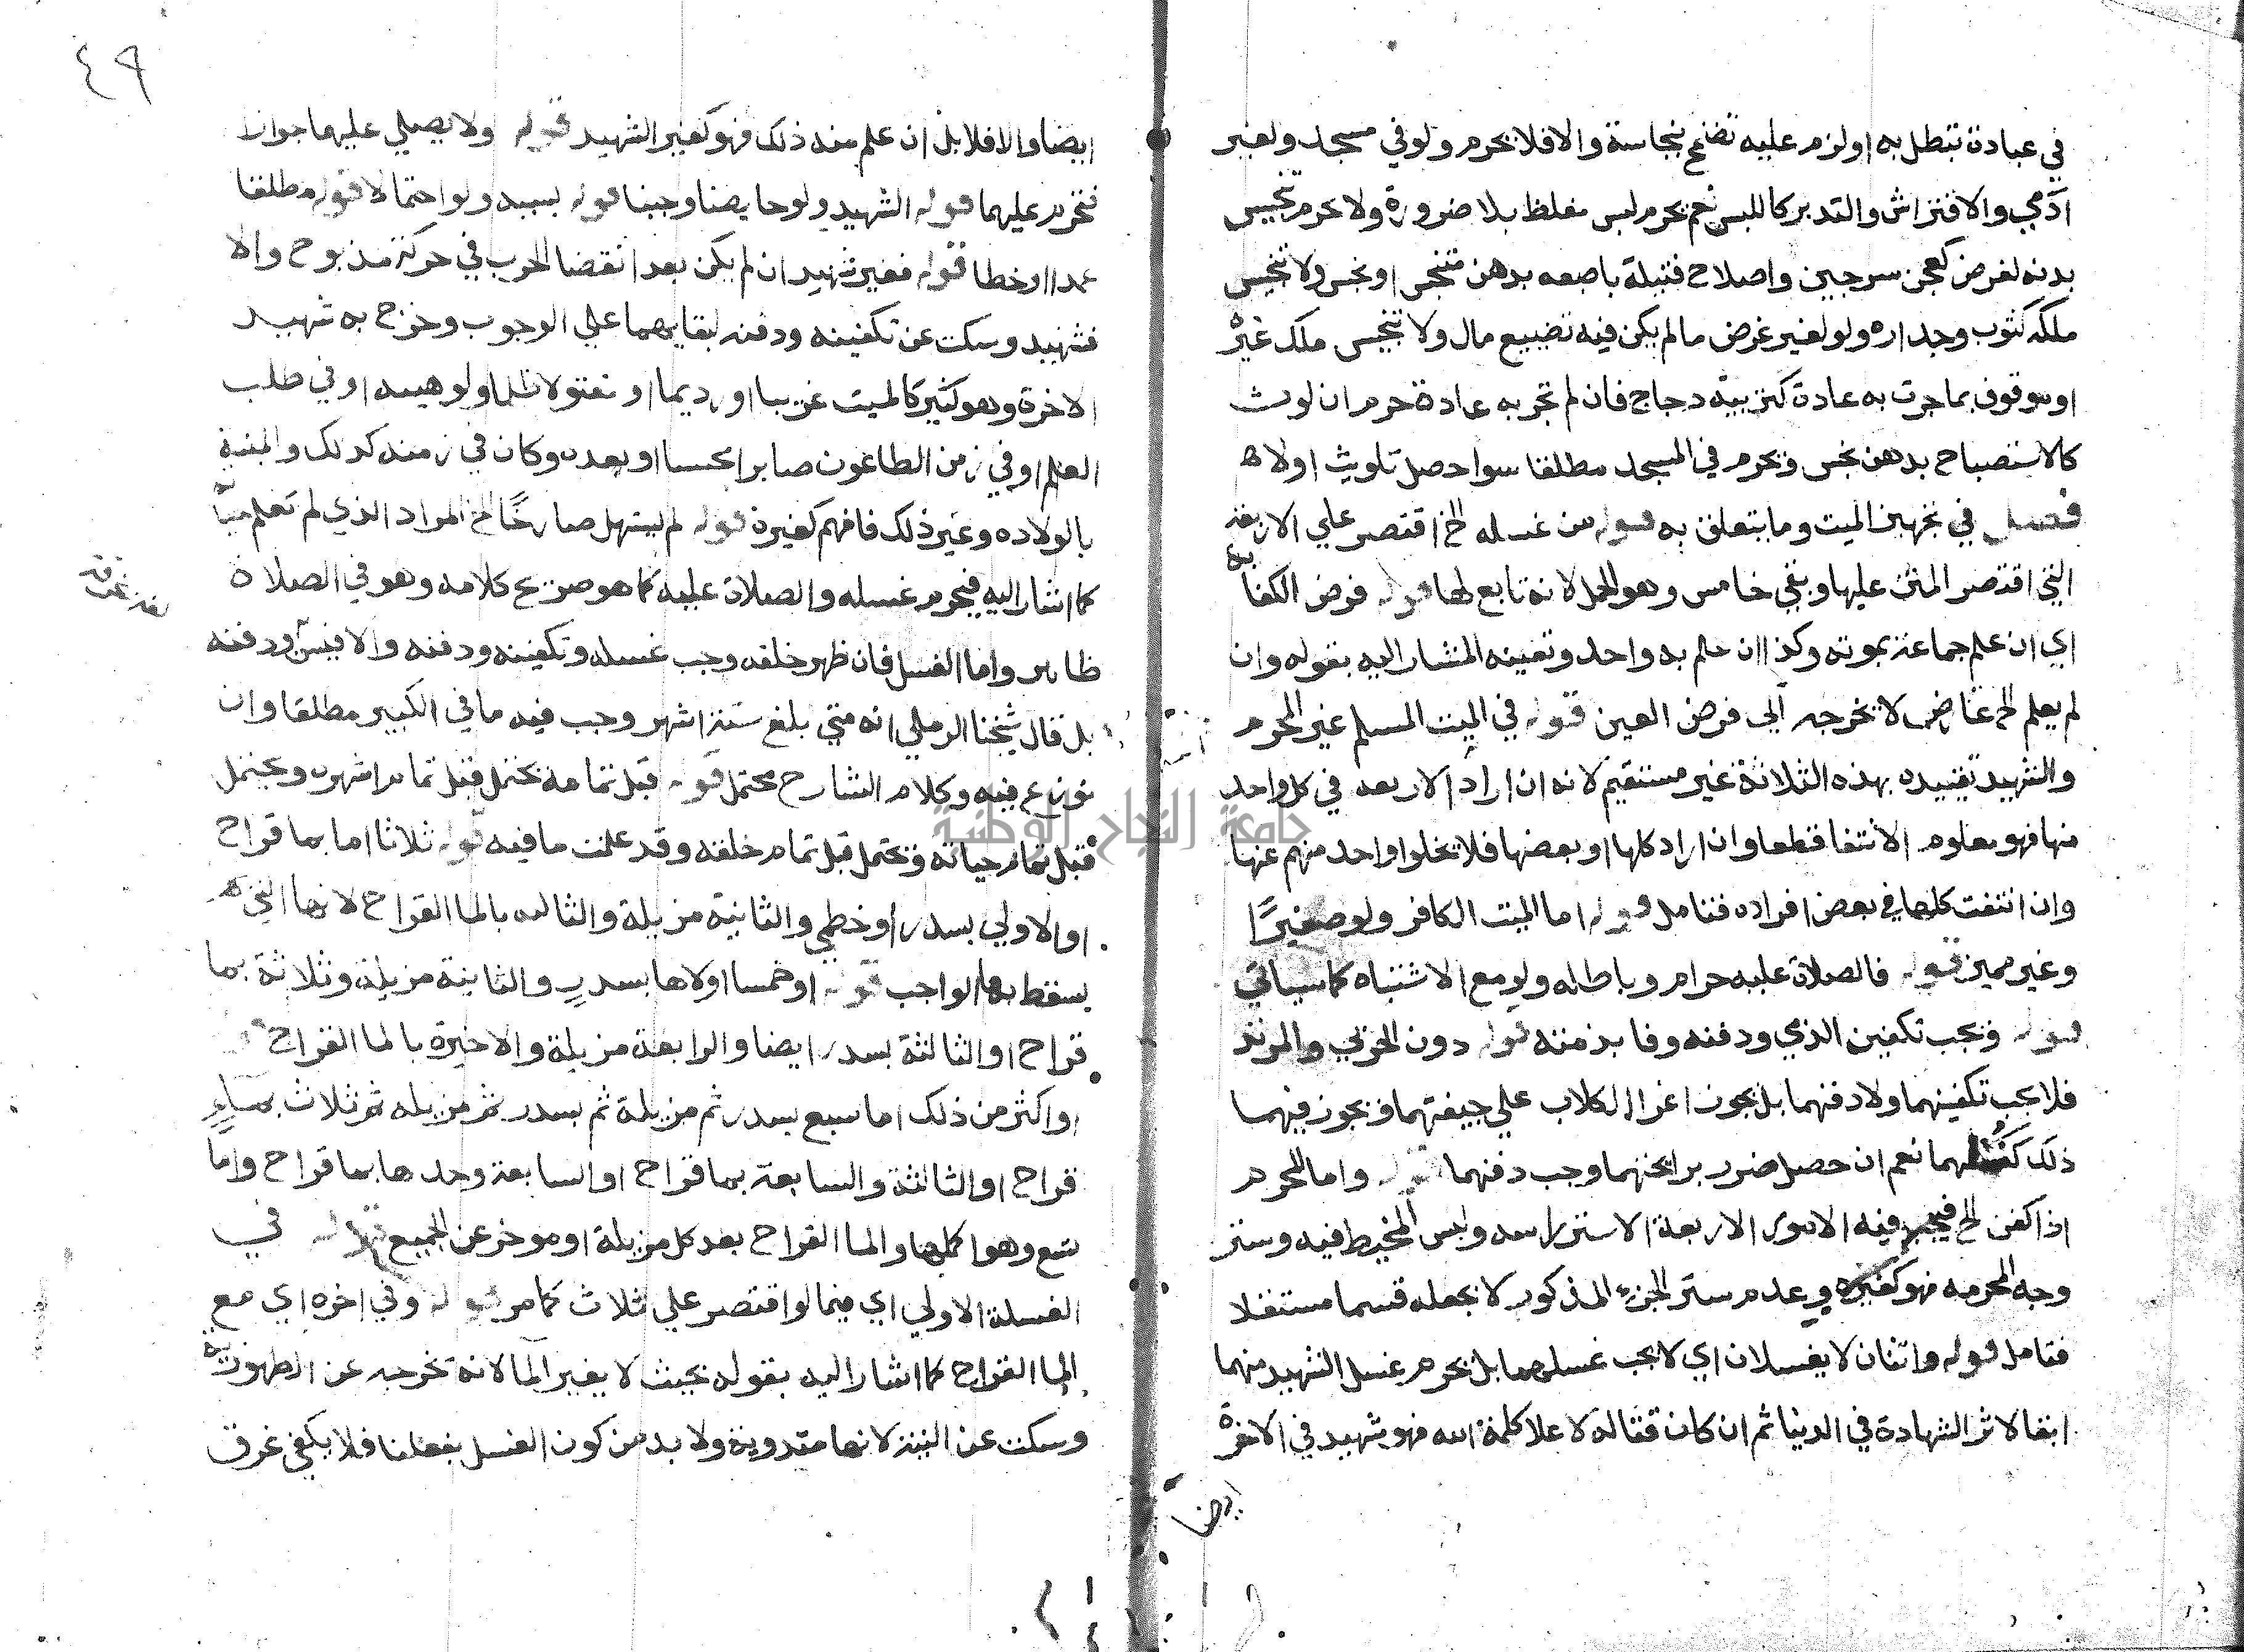 في عبادة تبطل به او لزم عليه تضمخ بنجاسة والا فلا يحرم ولو في مسجد ولغير
ادمي والافتراش والتدبر كاللبس نعم يحرم لبس مغلظ بلا ضرورة ولا يحرم تنجيس
بدنه لغرض كعجن سرجين واصلاح فتيلة باصبعه بدهن متنجس او نجس ولا تنجيس
ملكه كثوب وجداره ولو لغير غرض ما لم يكن فيه تضييع مال ولا تنجيس ملك غيره
او موقوف بما جرت به عادة كتربية دجاج فان لم تجر به عادة حرم ان لوث
كالاستصباح بدهن نجس ويحرم في المسجد مطلقا سوا حصل تلويث اولا
فصل في تجهيز الميت وما يتعلق به قوله من غسله الخ اقتصر علي الاربعة
التي اقتصر المتن عليها وبقي خامس وهو الحمل لانه تابع لها قوله فرض الكفاية
اي ان علم جماعة بموته وكذا ان علم به واحد وتعينه المشار اليه بقوله وان
لم يعلم الخ عارض لا يخرجه الي فرض العين قوله في الميت المسلم غير المحرم
والشهيد تقييده بهذه الثلاثة غير مستقيم لانه ان اراد الاربعة في كل واحد
منها فهو معلوم الانتفا قطعا وان اراد كلها او بعضها فلا تخلوا واحد منهم عنها
وان انتفت كلها في بعض افراده فتامل قوله اما الميت الكافر ولو صغيرًا
وغير مميز قوله فالصلاة عليه حرام وباطله ولو مع الاشتباه كما سياتي
قوله ويجب تكفين الذمي ودفنه وفا بذمته قوله دون الحربي والمرتد
فلا يجب تكفينهما ولا دفنهما بل يجوز اغرا الكلاب علي جيفتهما ويجوز فيهما
ذلك نعم ان حصل ضرر برايحتهما وجب دفنهما قوله واما المحرم
اذا كفن الخ فيه الامور الاربعة الا ستر راسه ولبس المخيط فيه وستر
وجه المحرمه فهو كغيره وعدم ستر الجزء المذكور لا يجعله قسما مستقلا
فتامل قوله واثنان لا يغسلان اي لا يجب غسلهما بل يحرم غسل الشهيد منهما
ابقا لاثر الشهادة في الدنيا ثم ان كان قتاله لاعلا كلمة الله فهو شهيد في الاخرة
ايضا
٤٩
ايضا والا فلا بل ان علم منه ذلك فهو كغير الشهيد قوله ولا يصلي عليهما جوازا
فتحرم عليهما قوله الشهيد ولو حايضا وجنبا قوله بسببه ولو احتمالا قوله مطلقا
عمدا او خطا قوله فغير شهيد ان لم يكن بعد انقضا الحرب في حركة مذبوح والا
فشهيد وسكت عن تكفينه ودفنه لبقايهما علي الوجوب وخرج به شهيد
الاخرة وهو كثير كالميت غريبا او رديما او مقتولا ظلما ولو هيبه او في طلب
العلم او في زمن الطاعون صابرا محتسبا او بعده وكان في زمنه كذلك والميتة
بالولاده وغير ذلك فافهم كغيره قوله لم يستهل صارخًا الخ المراد الذي لم تعلم
كما اشار اليه فيحرم غسله والصلاة عليه كما هو صريح كلامه وهو في الصلاة
ظاهر واما الغسل فان ظهر خلقه وجب غسله وتكفينه ودفنه والا فيسن ودفنه
بل قال شيخنا الرملي انه متي بلغ ستة اشهر وجب فيه ما في الكبير مطلقا وان
نوزع فيه وكلام الشارح محتمل قوله قبل تمامه يحتمل قبل تمام اشهره ويحتمل
قبل تمام حياته ويحتمل قبل تمام خلقه وقد علمت ما فيه قوله ثلاثا اما بما قراح
او الاولي بسدر او خطمي والثانية مزيلة والثالثه بالما القراح لانها التي
يسقط بها الواجب قوله او خمسا اولاها بسدر والثانية مزيلة وثلاثة بما
قراح او الثالثة بسدر ايضا والرابعة مزيلة والاخيرة بالما القراح
او اكثر من ذلك اما سبع بسدر ثم مزيلة ثم بسدر ثم مزيله ثم ثلاث بماء
قراح او الثالثة والسابعة بما قراح او السابعة وحدها بما قراح واما
تسع وهو اكملها والما القراح بعد كل مزيلة او موخر عن الجميع قوله في
الغسلة الاولي اي فيما لو اقتصر علي ثلاث كما مر قوله وفي اخره اي مع
الما القراح كما اشار اليه بقوله بحيث لا يغير الما لانه يخرجه عن الطهورية
وسكت عن النية لانها مندوبة ولا بد من كون الغسل بفعلنا فلا يكفي غرق
جامعة النجاح الوطنية